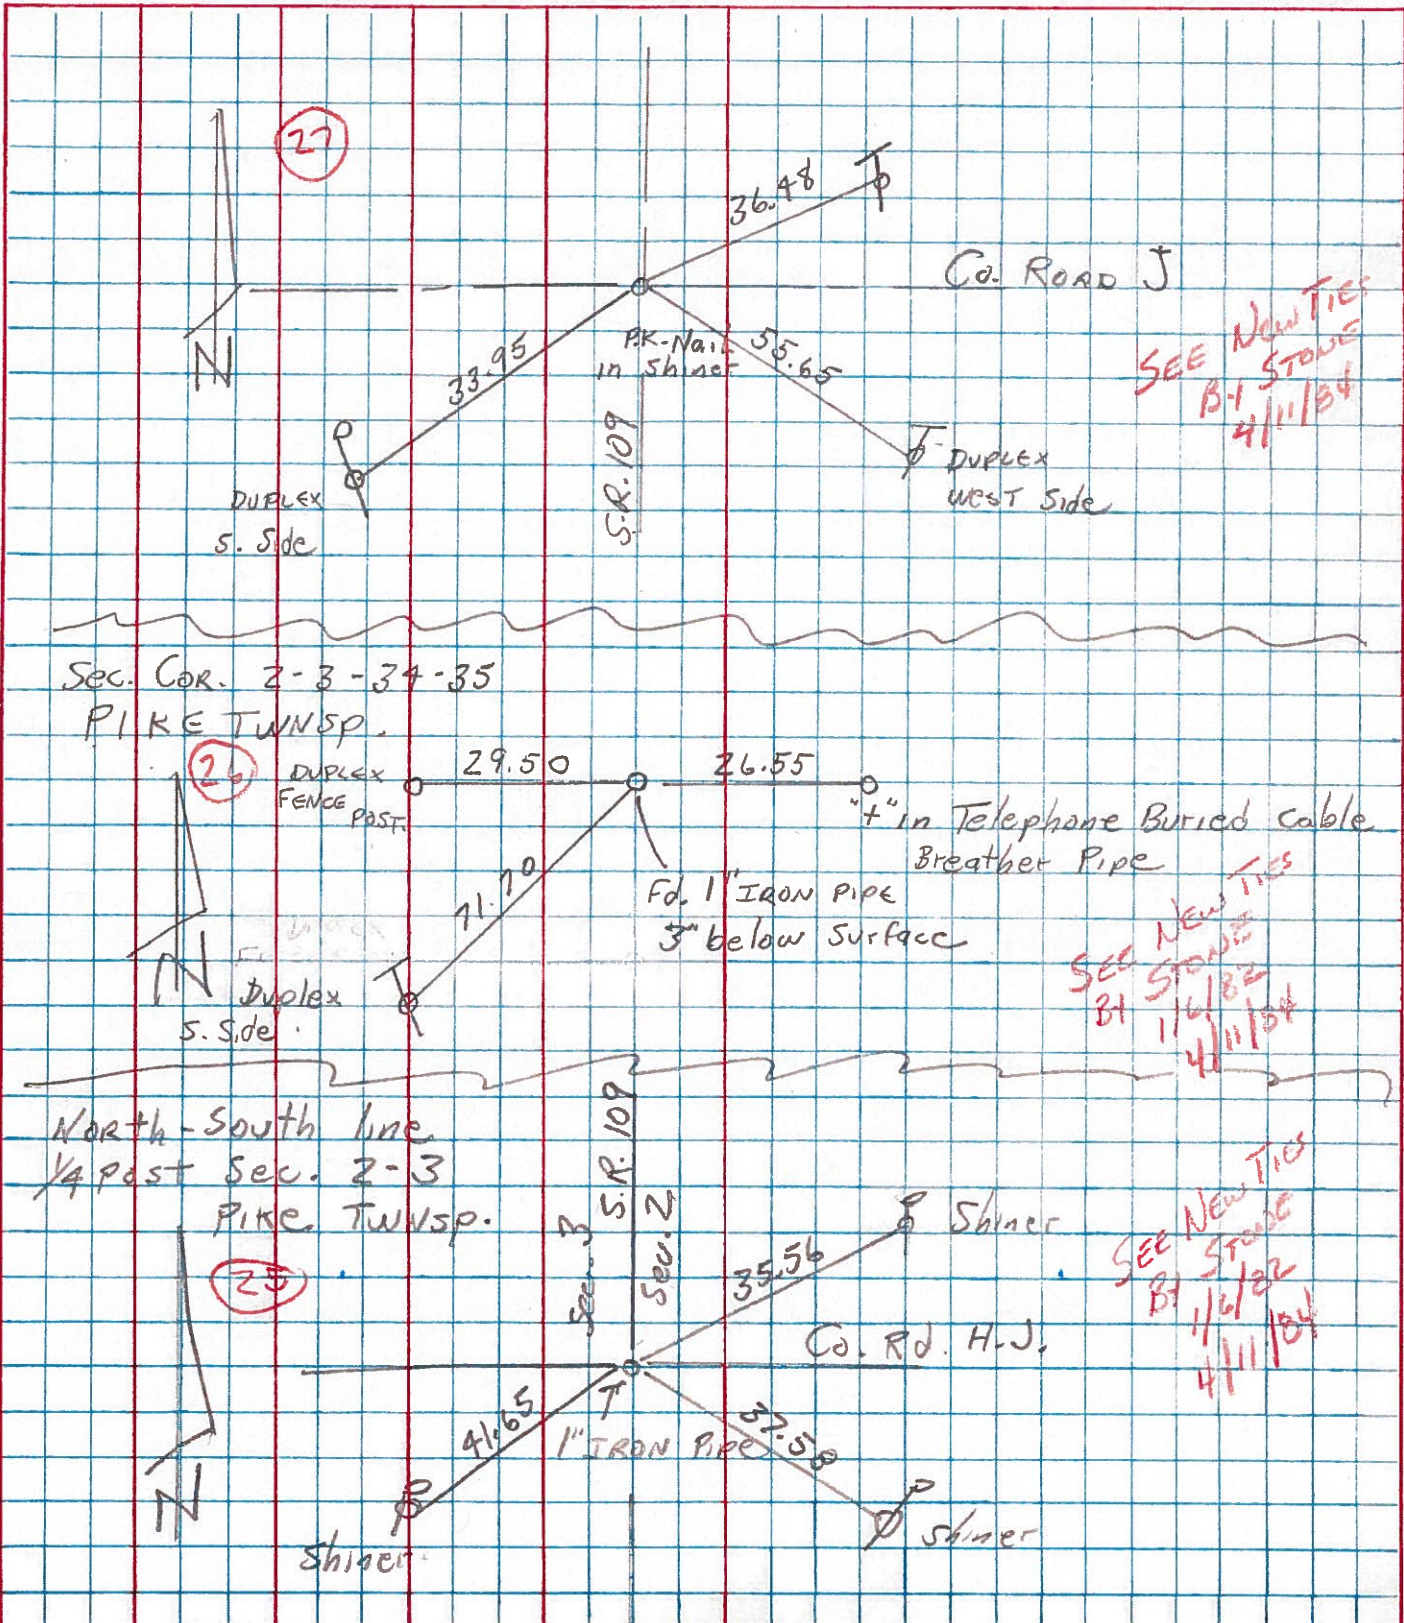 27
36.48
Co. ROAD J
P.K-Nail
in Shiner
33.95
55.65
S.R. 109
N
DUPLEX
S. Side
DUPLEX
WEST Side
SEE NEW TIES
B-1 STONE
4/11/84
Sec. COR. 2-3-34-35
PIKE TWNSP.
26
DUPLEX
FENCE
POST.
29.50
26.55
"+" in Telephone Buried Cable
Breather Pipe
71.70
Fd. 1" IRON PIPE
3" below Surface
N
Duplex
S. Side.
SEE NEW TIES
B1 STONE
1/6/82
4/11/84
NORth-South line
1/4 post Sec. 2-3
PIKE TWNSP.
25
S.R. 109
Sec. 3
Sec. 2
35.56
Shiner
Co. Rd. H-J.
41.65
1" IRON PIPE
37.58
N
Shiner
Shiner
SEE NEW TIES
B1 STONE
1/6/82
4/11/84